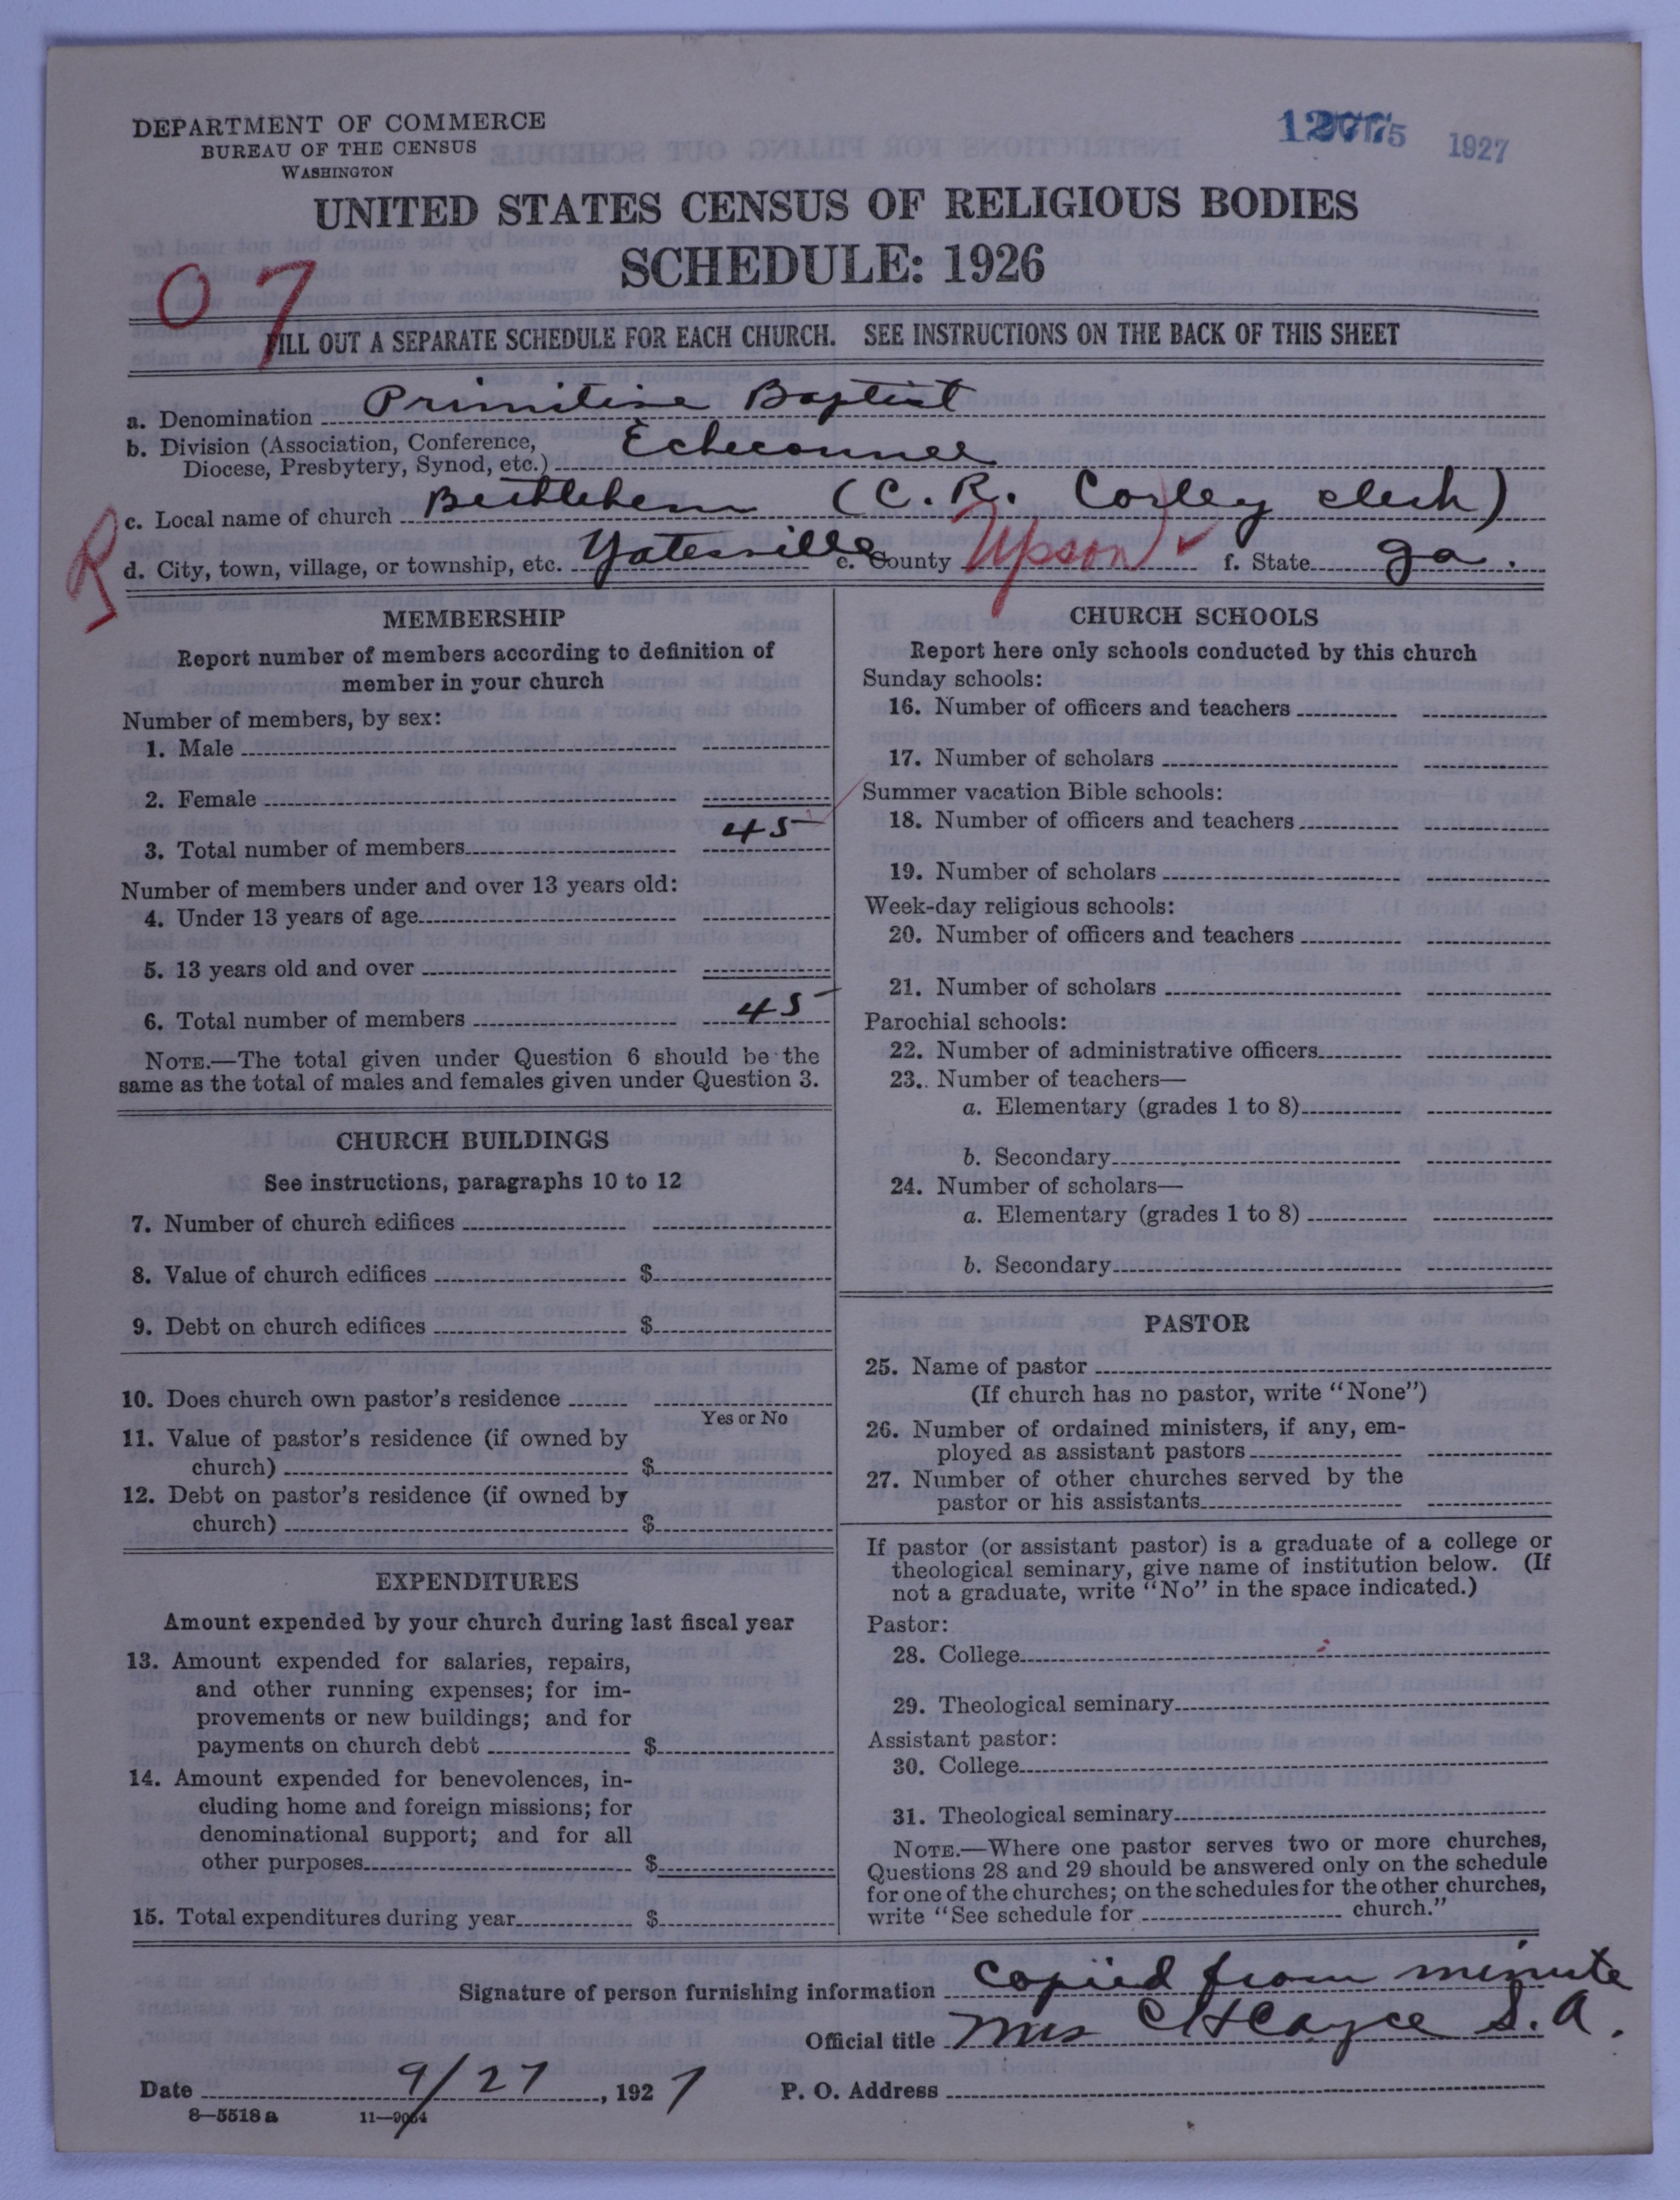 DEPARTMENT OF COMMERCE
BUREAU OF THE CENSUS
WASHINGTON
1927
UNITED STATES CENSUS OF RELIGIOUS BODIES
SCHEDULE: 1926
07
FILL OUT A SEPARATE SCHEDULE FOR EACH CHURCH. SEE INSTRUCTIONS ON THE BACK OF THIS SHEET
a. Denomination Primitive Baptist
b. Division (Association, Conference,
Diocese, Presbytery, Synod, etc.) Echeconnee
c. Local name of church Bethlehem (C. R. Corley clerk)
R
d. City, town, village, or township, etc. Yatesville e. County Upson f. State Ga.
MEMBERSHIP
Report number of members according to definition of
member in your church
Number of members, by sex:
1. Male
2. Female
3. Total number of members 45
Number of members under and over 13 years old:
4. Under 13 years of age
5. 13 years old and over
6. Total number of members 45
NOTE.—The total given under Question 6 should be the
same as the total of males and females given under Question 3.
CHURCH BUILDINGS
See instructions, paragraphs 10 to 12
7. Number of church edifices
8. Value of church edifices $
9. Debt on church edifices $
10. Does church own pastor's residence
Yes or No
11. Value of pastor's residence (if owned by
church) $
12. Debt on pastor's residence (if owned by
church) $
EXPENDITURES
Amount expended by your church during last fiscal year
13. Amount expended for salaries, repairs,
and other running expenses; for im-
provements or new buildings; and for
payments on church debt $
14. Amount expended for benevolences, in-
cluding home and foreign missions; for
denominational support; and for all
other purposes $
15. Total expenditures during year $
CHURCH SCHOOLS
Report here only schools conducted by this church
Sunday schools:
16. Number of officers and teachers
17. Number of scholars
Summer vacation Bible schools:
18. Number of officers and teachers
19. Number of scholars
Week-day religious schools:
20. Number of officers and teachers
21. Number of scholars
Parochial schools:
22. Number of administrative officers
23. Number of teachers—
a. Elementary (grades 1 to 8)
b. Secondary
24. Number of scholars—
a. Elementary (grades 1 to 8)
b. Secondary
PASTOR
25. Name of pastor
(If church has no pastor, write "None")
26. Number of ordained ministers, if any, em-
ployed as assistant pastors
27. Number of other churches served by the
pastor or his assistants
If pastor (or assistant pastor) is a graduate of a college or
theological seminary, give name of institution below. (If
not a graduate, write "No" in the space indicated.)
Pastor:
28. College
29. Theological seminary
Assistant pastor:
30. College
31. Theological seminary
NOTE.—Where one pastor serves two or more churches,
Questions 28 and 29 should be answered only on the schedule
for one of the churches; on the schedules for the other churches,
write "See schedule for church."
Signature of person furnishing information copied from minute
Official title Mrs C H Cayce S. A.
Date 9/27, 1927 P. O. Address
8—5518 a 11—9064